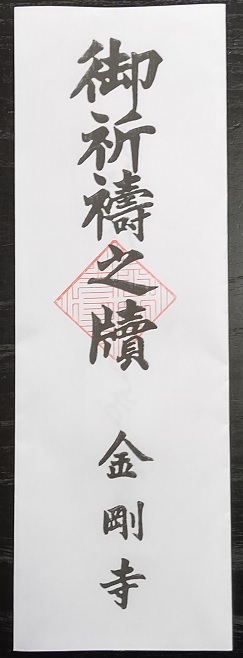 御祈禱之牘
金剛寺